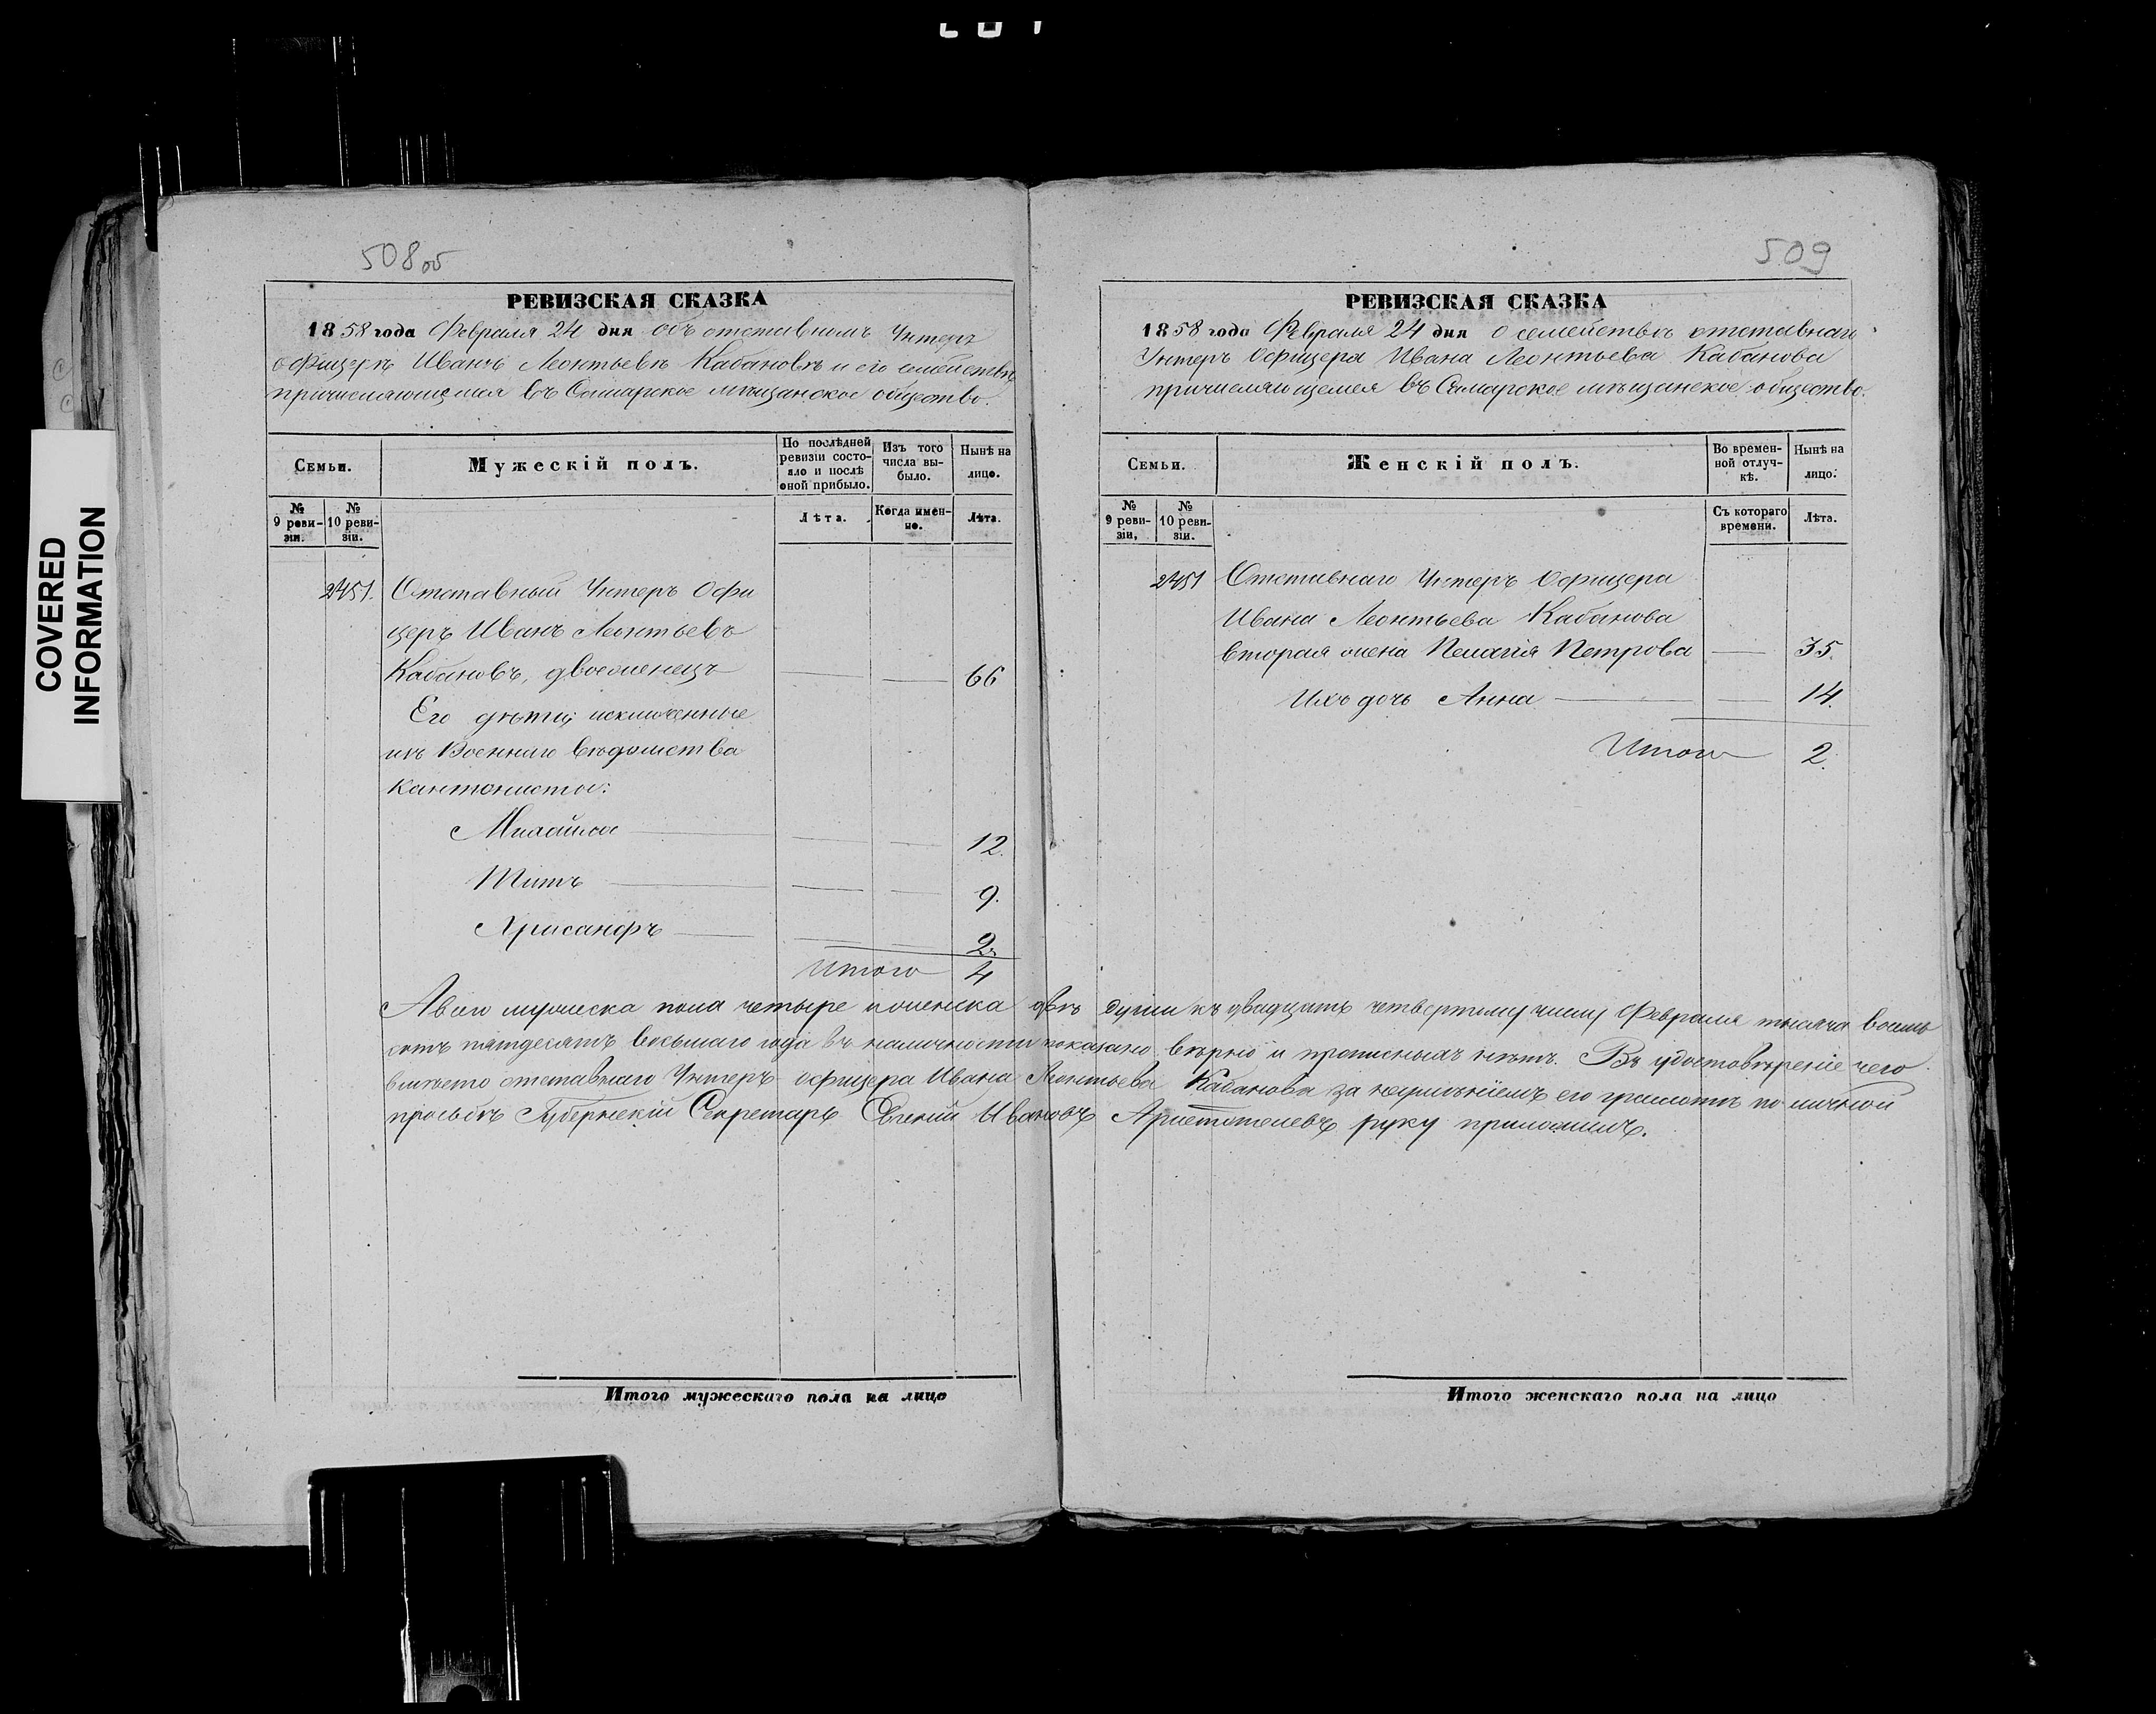 508 об
РЕВИЗСКАЯ СКАЗКА
1858 года Февраля 24 дня объ отставномъ Унтеръ
офицерѣ Иванѣ Леонтьевѣ Кабановѣ и его семействѣ
причисляющемся въ Самарское мѣщанское общество.
Семьи.
Мужескій полъ.
По послѣдней ревизіи состояло и послѣ оной прибыло.
Изъ того числа выбыло.
Нынѣ на лицо.
№ 9 ревизіи.
№ 10 ревизіи.
Лѣта.
Когда именно.
Лѣта.
2451. Отставный Унтеръ Офи
церъ Иванъ Леонтьевъ
Кабановъ, двоеженецъ — — 66
Его дѣти, исключенные
изъ Военнаго вѣдомства
кантонисты:
Михайла — — 12.
Титъ — — 9.
Хрисанфъ — — 2.
Итого 4
509
РЕВИЗСКАЯ СКАЗКА
1858 года Февраля 24 дня о семействѣ отставнаго
Унтеръ Офицера Ивана Леонтьева Кабанова
причисляющемся въ Самарское мѣщанское общество.
Семьи.
Женскій полъ.
Во временной отлучкѣ.
Нынѣ на лицо.
№ 9 ревизіи.
№ 10 ревизіи.
Съ котораго времени.
Лѣта.
2451 Отставнаго Унтеръ Офицера
Ивана Леонтьева Кабанова
вторая жена Пелагія Петрова — 35.
Ихъ дочь Анна — 14.
Итого 2.
А всего мужеска пола четыре и женска двѣ души къ двадцать четвертому числу Февраля тысяча восемь
сотъ пятдесятъ восьмаго года въ наличности показано вѣрно и прописныхъ нѣтъ. Въ удостовѣреніе чего
вмѣсто отставнаго Унтеръ офицера Ивана Леонтьева Кабанова за неумѣніемъ его грамотѣ по личной
просьбѣ Губернскій Секретарь Евгеній Ивановъ Аристотелевъ руку приложилъ.
Итого мужескаго пола на лицо
Итого женскаго пола на лицо
COVERED
INFORMATION